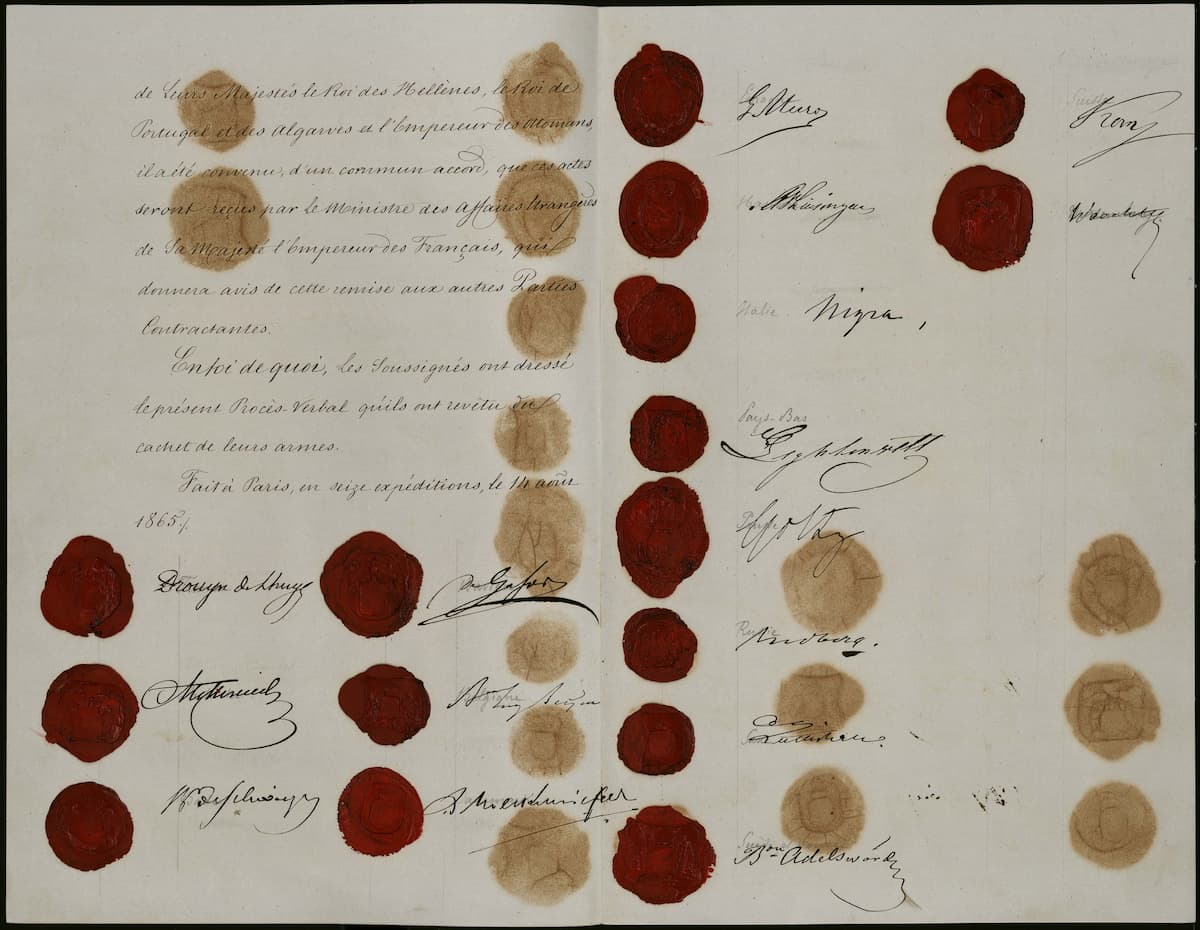 de Leurs Majestés le Roi des Hellènes, le Roi de
Portugal et des Algarves et l'Empereur des Ottomans,
il a été convenu, d'un commun accord, que ces actes
seront reçus par le Ministre des Affaires Etrangères
de Sa Majesté l'Empereur des Français, qui
donnera avis de cette remise aux autres Parties
Contractantes.
En foi de quoi, les Soussignés ont dressé
le présent Procès-Verbal qu'ils ont revêtu du
cachet de leurs armes.
Fait à Paris, en seize expéditions, le 14 août
1865./.
Drouyn de Lhuys
Metternich
Belgique
Italie
Nigra,
Pays-Bas
Lightenvelt
Goltz
Russie
Budberg.
Bon Adelswärd
Suisse
Kern